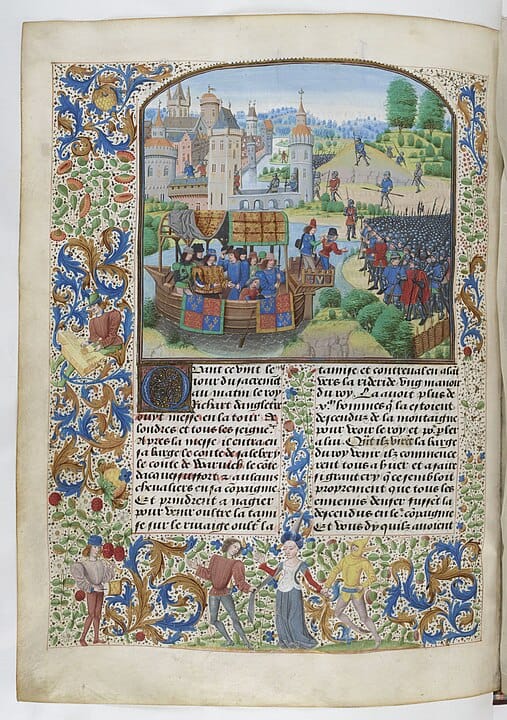 Quant ce vint le
iour du sacremēt
au matin le roy
Richart dangleterre
ouyt messe en la tour de
londres et tous les seignrs
Apres la messe il entra en
sa barge le conte de salebery
le conte de Waruich le cōte
et aucuns
cheualiers en sa cōpaignie
Et prindrent a nagier
pour venir oultre la tami
se sur le riuaige oultre la
tamise et contreual en alāt
vers la rideride vng manoir
du roy. La auoit plus de
hommes qui la estoient
descendus de la montaigne
pour veoir le roy et pꝰ pler
a lui. Quāt ilz virēt la barge
du roy venir ilz commence
rent tous a huer et a faire
si grant cry quil sembloit
proprement que tous les
ennemis denfer fussēt la
descendus en leur cōpaignie
Et vous dy quilz auoient